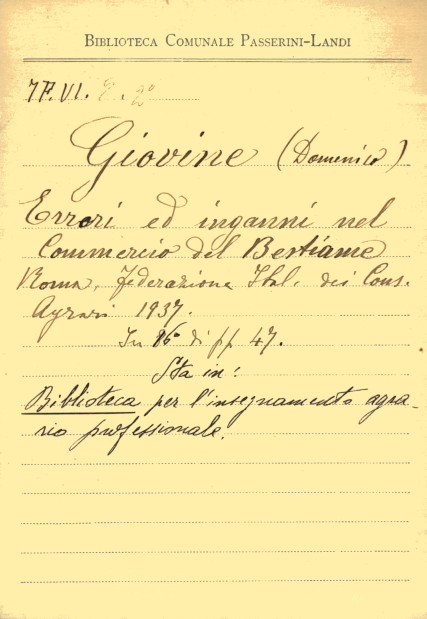 BIBLIOTECA COMUNALE PASSERINI-LANDI
7F.VI. 2º
Giovine (Domenico)
Errori ed inganni nel
Commercio del Bestiame
Roma, Federazione Ital. dei Cons.
Agrari 1937.
In 16º di pp 47.
Sta in:
Biblioteca per l'insegnamento agra-
rio professionale.